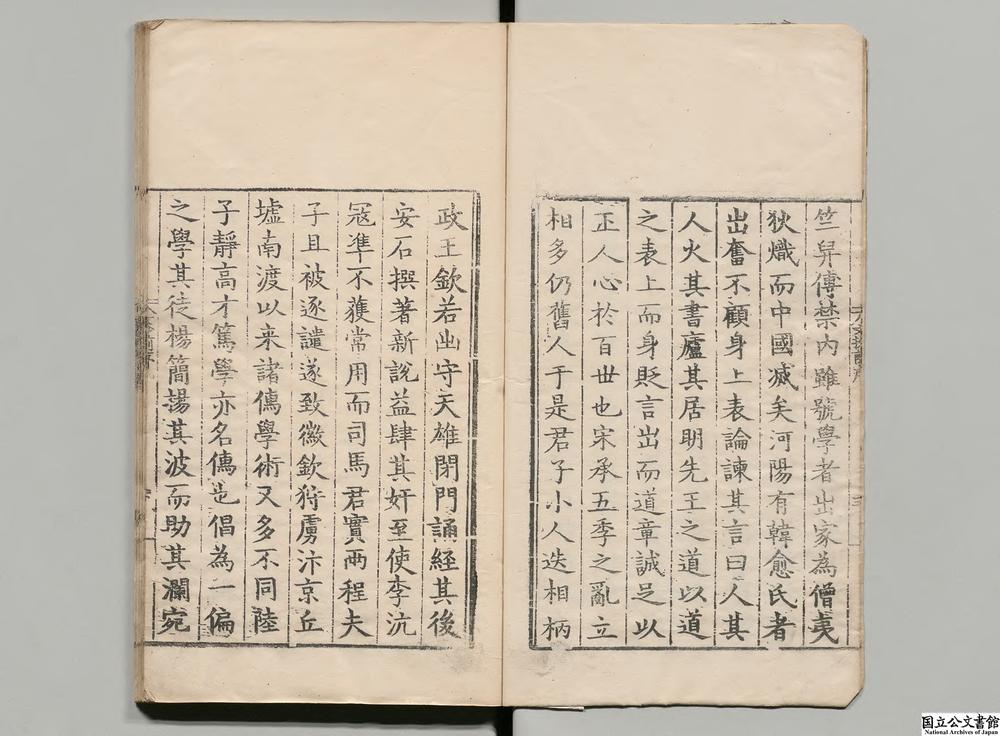 竺舁傳禁内雖號學者出家為僧夷
狄熾而中國滅矣河陽有韓愈氏者
出奮不顧身上表論諫其言曰人其
人火其書廬其居明先王之道以道
之表上而身貶言出而道章誠足以
正人心於百世也宋承五季之亂立
相多仍舊人于是君子小人迭相柄
政王欽若出守天雄閉門誦經其後
安石撰著新說益肆其奸至使李沆
冦準不獲常用而司馬君實兩程夫
子且被逐譴遂致徽欽狩虜汴京丘
墟南渡以来諸儒學術又多不同陸
子靜高才篤學亦名儒也倡為一偏
之學其徒楊簡揚其波而助其瀾宛
国立公文書館
National Archives of Japan